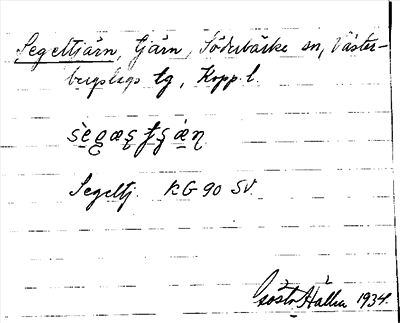 Segeltjärn, tjärn, Söderbärke sn, Väster-
bergslags tg, Kopp. l.
Segeltj. KG 90 SV.
Gösta Hallin 1934.